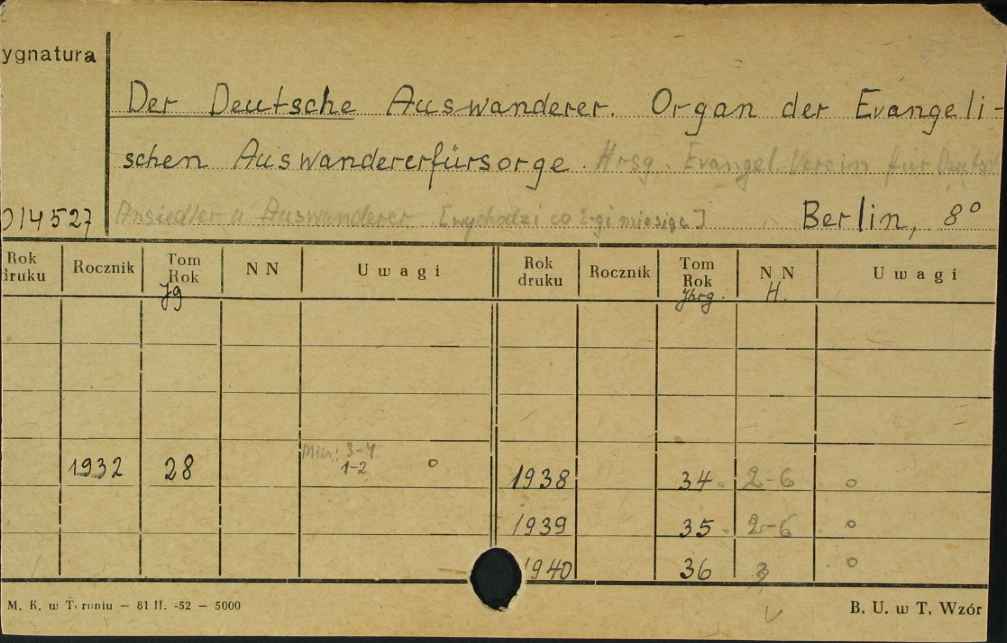 ygnatura
Der Deutsche Auswanderer. Organ der Evangeli-
schen Auswandererfürsorge. Hrsg. Evangel. Verein für Deutsche
014527 Ansiedler u. Auswanderer [wychodzi co 2-gi miesiąc] Berlin, 8°
Rok druku Rocznik Tom Rok Jg NN Uwagi Rok druku Rocznik Tom Rok Jhrg. NN H. Uwagi
1932 28 3-4 1-2 o 1938 34. 2-6 o
1939 35. 2-6 o
1940 36 3 o
M. K. w Toruniu – 81 II. -52 – 5000 B. U. w T. Wzór